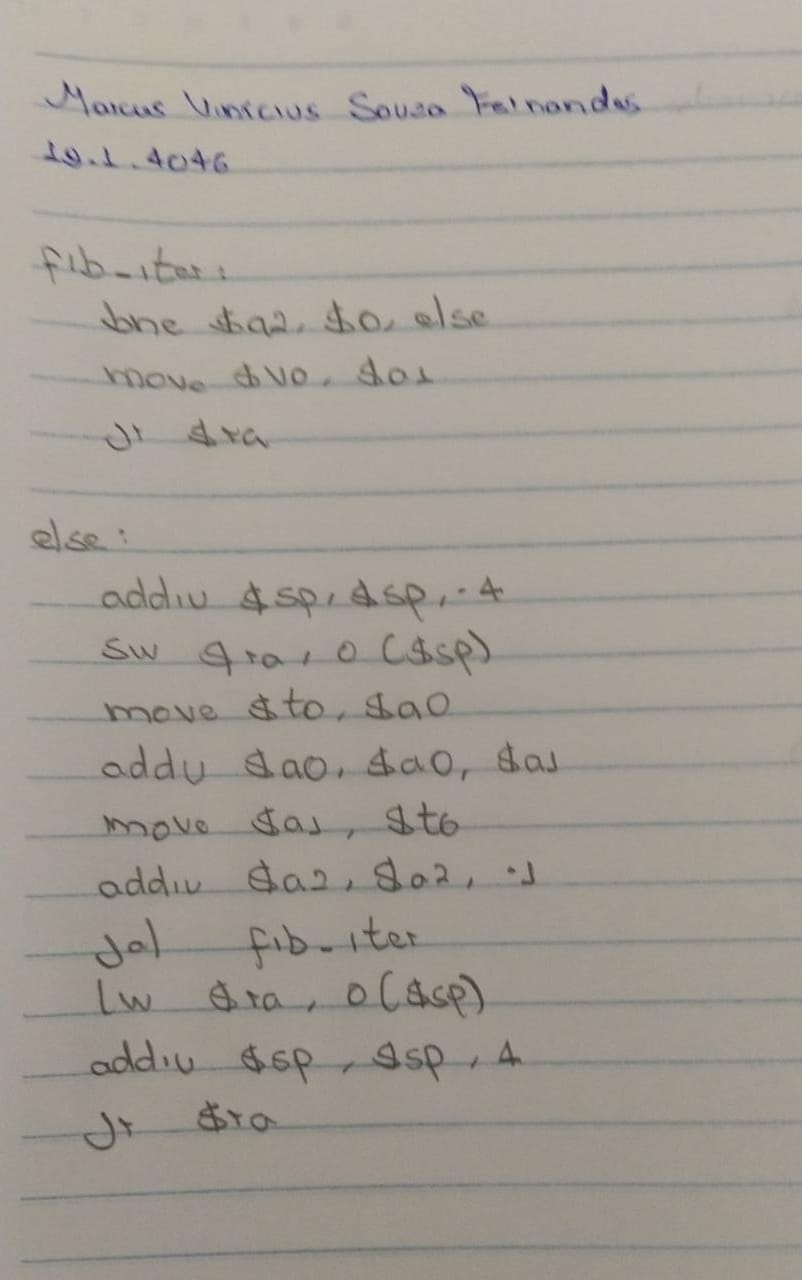 Marcus Vinícius Sousa Fernandes
19.1.4046
fib_iter:
bne $a2, $0, else
move $v0, $a1
jr $ra
else:
addiu $sp, $sp, -4
sw $ra, 0 ($sp)
move $t0, $a0
addu $a0, $a0, $a1
move $a1, $t0
addiu $a2, $a2, -1
jal fib_iter
lw $ra, 0($sp)
addiu $sp, $sp, 4
jr $ra